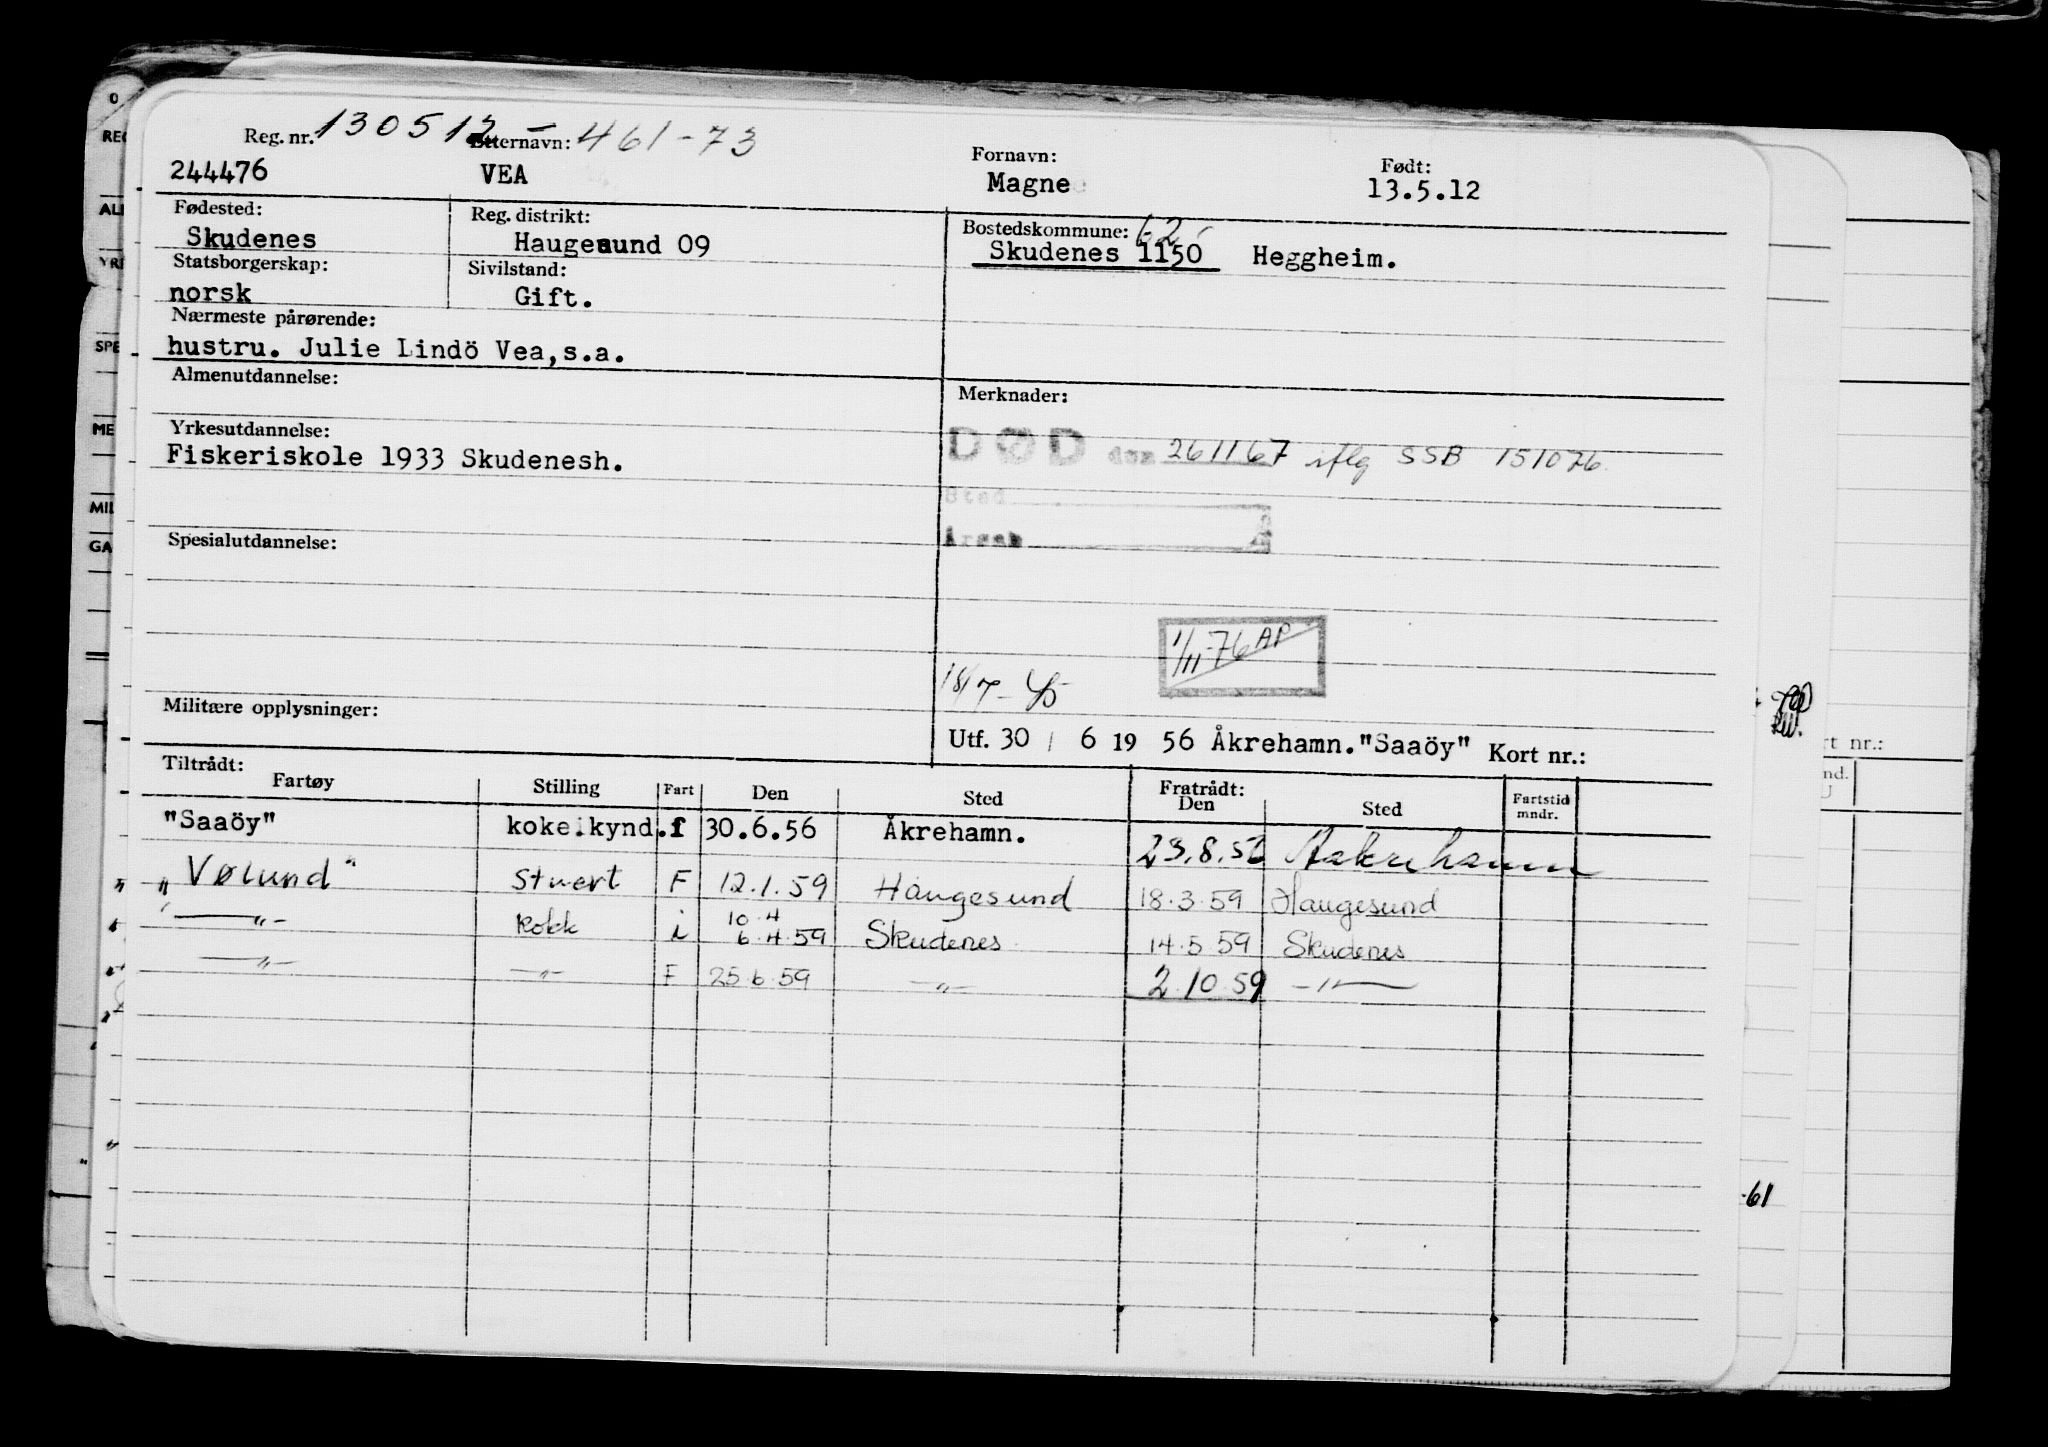 Reg. nr. 130512 - Etternavn: 461-73 Fornavn: Født:
244476 VEA Magne 13.5.12
Fødested: Reg. distrikt: Bostedskommune: 62
Skudenes Haugesund 09 Skudenes 1150 Heggheim.
Statsborgerskap: Sivilstand:
norsk Gift.
Nærmeste pårørende:
hustru. Julie Lindö Vea,s.a.
Almenutdannelse: Merknader:
Yrkesutdannelse: DØD den 261167 iflg SSB 151076
Fiskeriskole 1933 Skudenesh.
Sted
Spesialutdannelse: Årsak
1/11-76 AP
Militære opplysninger:
Utf. 30 / 6 19 56 Åkrehamn."Saaöy" Kort nr.:
Tiltrådt: Fratrådt:
Fartøy Stilling Fart Den Sted Den Sted Fartstid mndr.
"Saaöy" koke.kynd.f 30.6.56 Åkrehamn. 23.8.56 Aakrehamn
"Vølund" Stuert F 12.1.59 Haugesund 18.3.59 Haugesund
—"— kokk i 10.4 6.4.59 Skudenes 14.5 59 Skudenes
—"— —"— F 25.6.59 —"— 2.10.59 —"—
-61
rt nr.:
nd.
U
O
REG
ALM
YRK
SPE
ME
MIL
GA